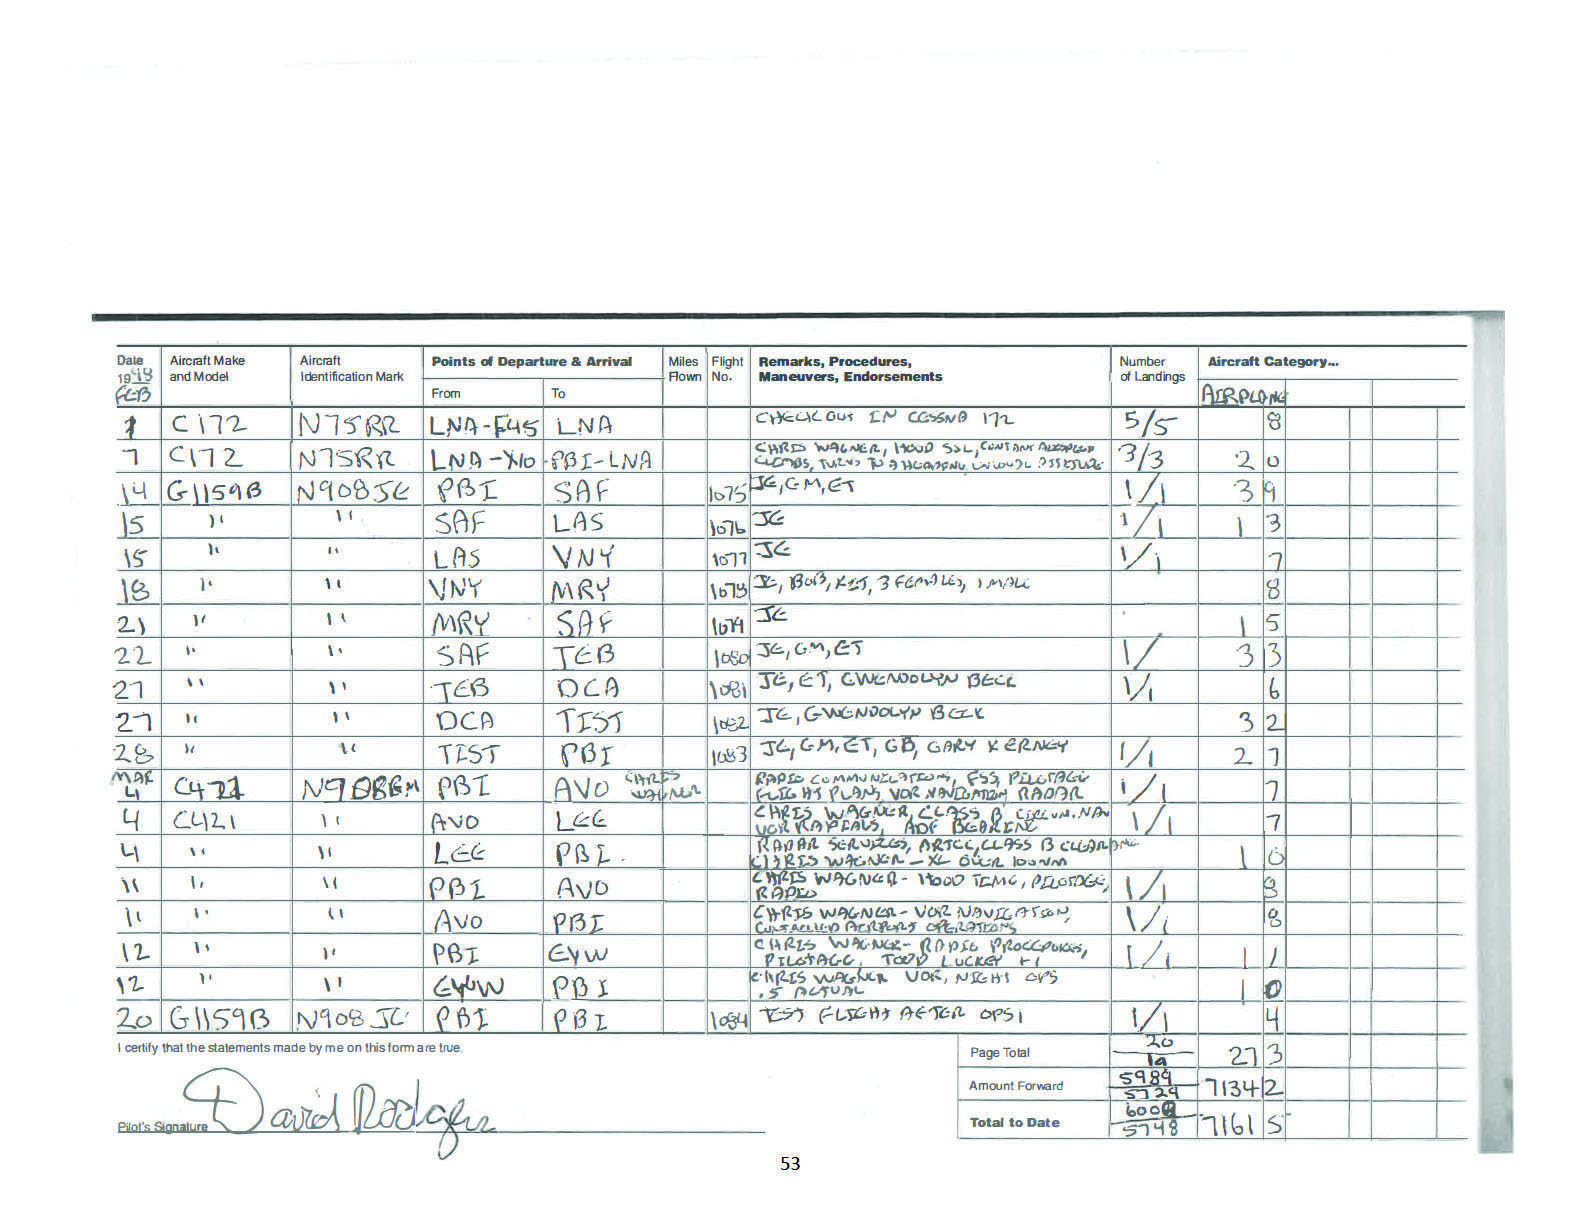 Date Aircraft Make Aircraft Points of Departure & Arrival Miles Flight Remarks, Procedures, Number Aircraft Category...
1998 and Model Identification Mark From To Flown No. Maneuvers, Endorsements of Landings
FEB AIRPLANE
1 C172 N75RR LNA-F45 LNA CHECK OUT IN CESSNA 172 5/5 8
7 C172 N75RR LNA-X10-PBI-LNA CHRIS WAGNER, HOOD S&L, CONSTANT AIRSPEED 3/3 2 0
CLIMBS, TURNS TO A HEADING, UNUSUAL ATTITUDE
14 G1159B N908JE PBI SAF 1075 JE, GM, ET 1/1 3 9
15 " " SAF LAS 1076 JE 1/1 1 3
15 " " LAS VNY 1077 JE 1/1 7
18 " " VNY MRY 1078 JE, BOB, 3 FEMALES, 1 MALE 8
21 " " MRY SAF 1079 JE 1 5
22 " " SAF TEB 1080 JE, GM, ET 1/ 3 3
27 " " TEB DCA 1081 JE, ET, GWENDOLYN BECK 1/1 6
27 " " DCA TIST 1082 JE, GWENDOLYN BECK 3 2
28 " " TIST PBI 1083 JE, GM, ET, GB, GARY KERNEY 1/1 2 7
MAR
4 C421 PBI AVO CHRIS WAGNER RADIO COMMUNICATIONS, FSS, PILOTAGE 1/1 7
FLIGHT PLANS, VOR NAVIGATION, RADAR
4 C421 " AVO LEE CHRIS WAGNER, CLASS B, CIRCUM. NAV 1/1 7
VOR RADIALS, ADF BEARING
4 " " LEE PBI RADAR SERVICES, ARTCC, CLASS B CLEARANCE 1 0
CHRIS WAGNER - XC OVER 100NM
11 " " PBI AVO CHRIS WAGNER - HOOD TIME, PILOTAGE, 1/1 8
RADIO
11 " " AVO PBI CHRIS WAGNER - VOR NAVIGATION, 1/1 8
CONTROLLED AIRPORT OPERATIONS
12 " " PBI EYW CHRIS WAGNER - RADIO PROCEDURES, 1/1 1 1
PILOTAGE, TODD LUCKEY +1
12 " " EYW PBI CHRIS WAGNER VOR, NIGHT OPS 1 0
.5 ACTUAL
20 G1159B N908JE PBI PBI 1084 TEST FLIGHT AFTER OPS1 1/1 4
I certify that the statements made by me on this form are true. Page Total 20/19 27 3
Amount Forward 5989/5729 7134 2
David Rodgers
Pilot's Signature Total to Date 6009/5748 7161 5
53